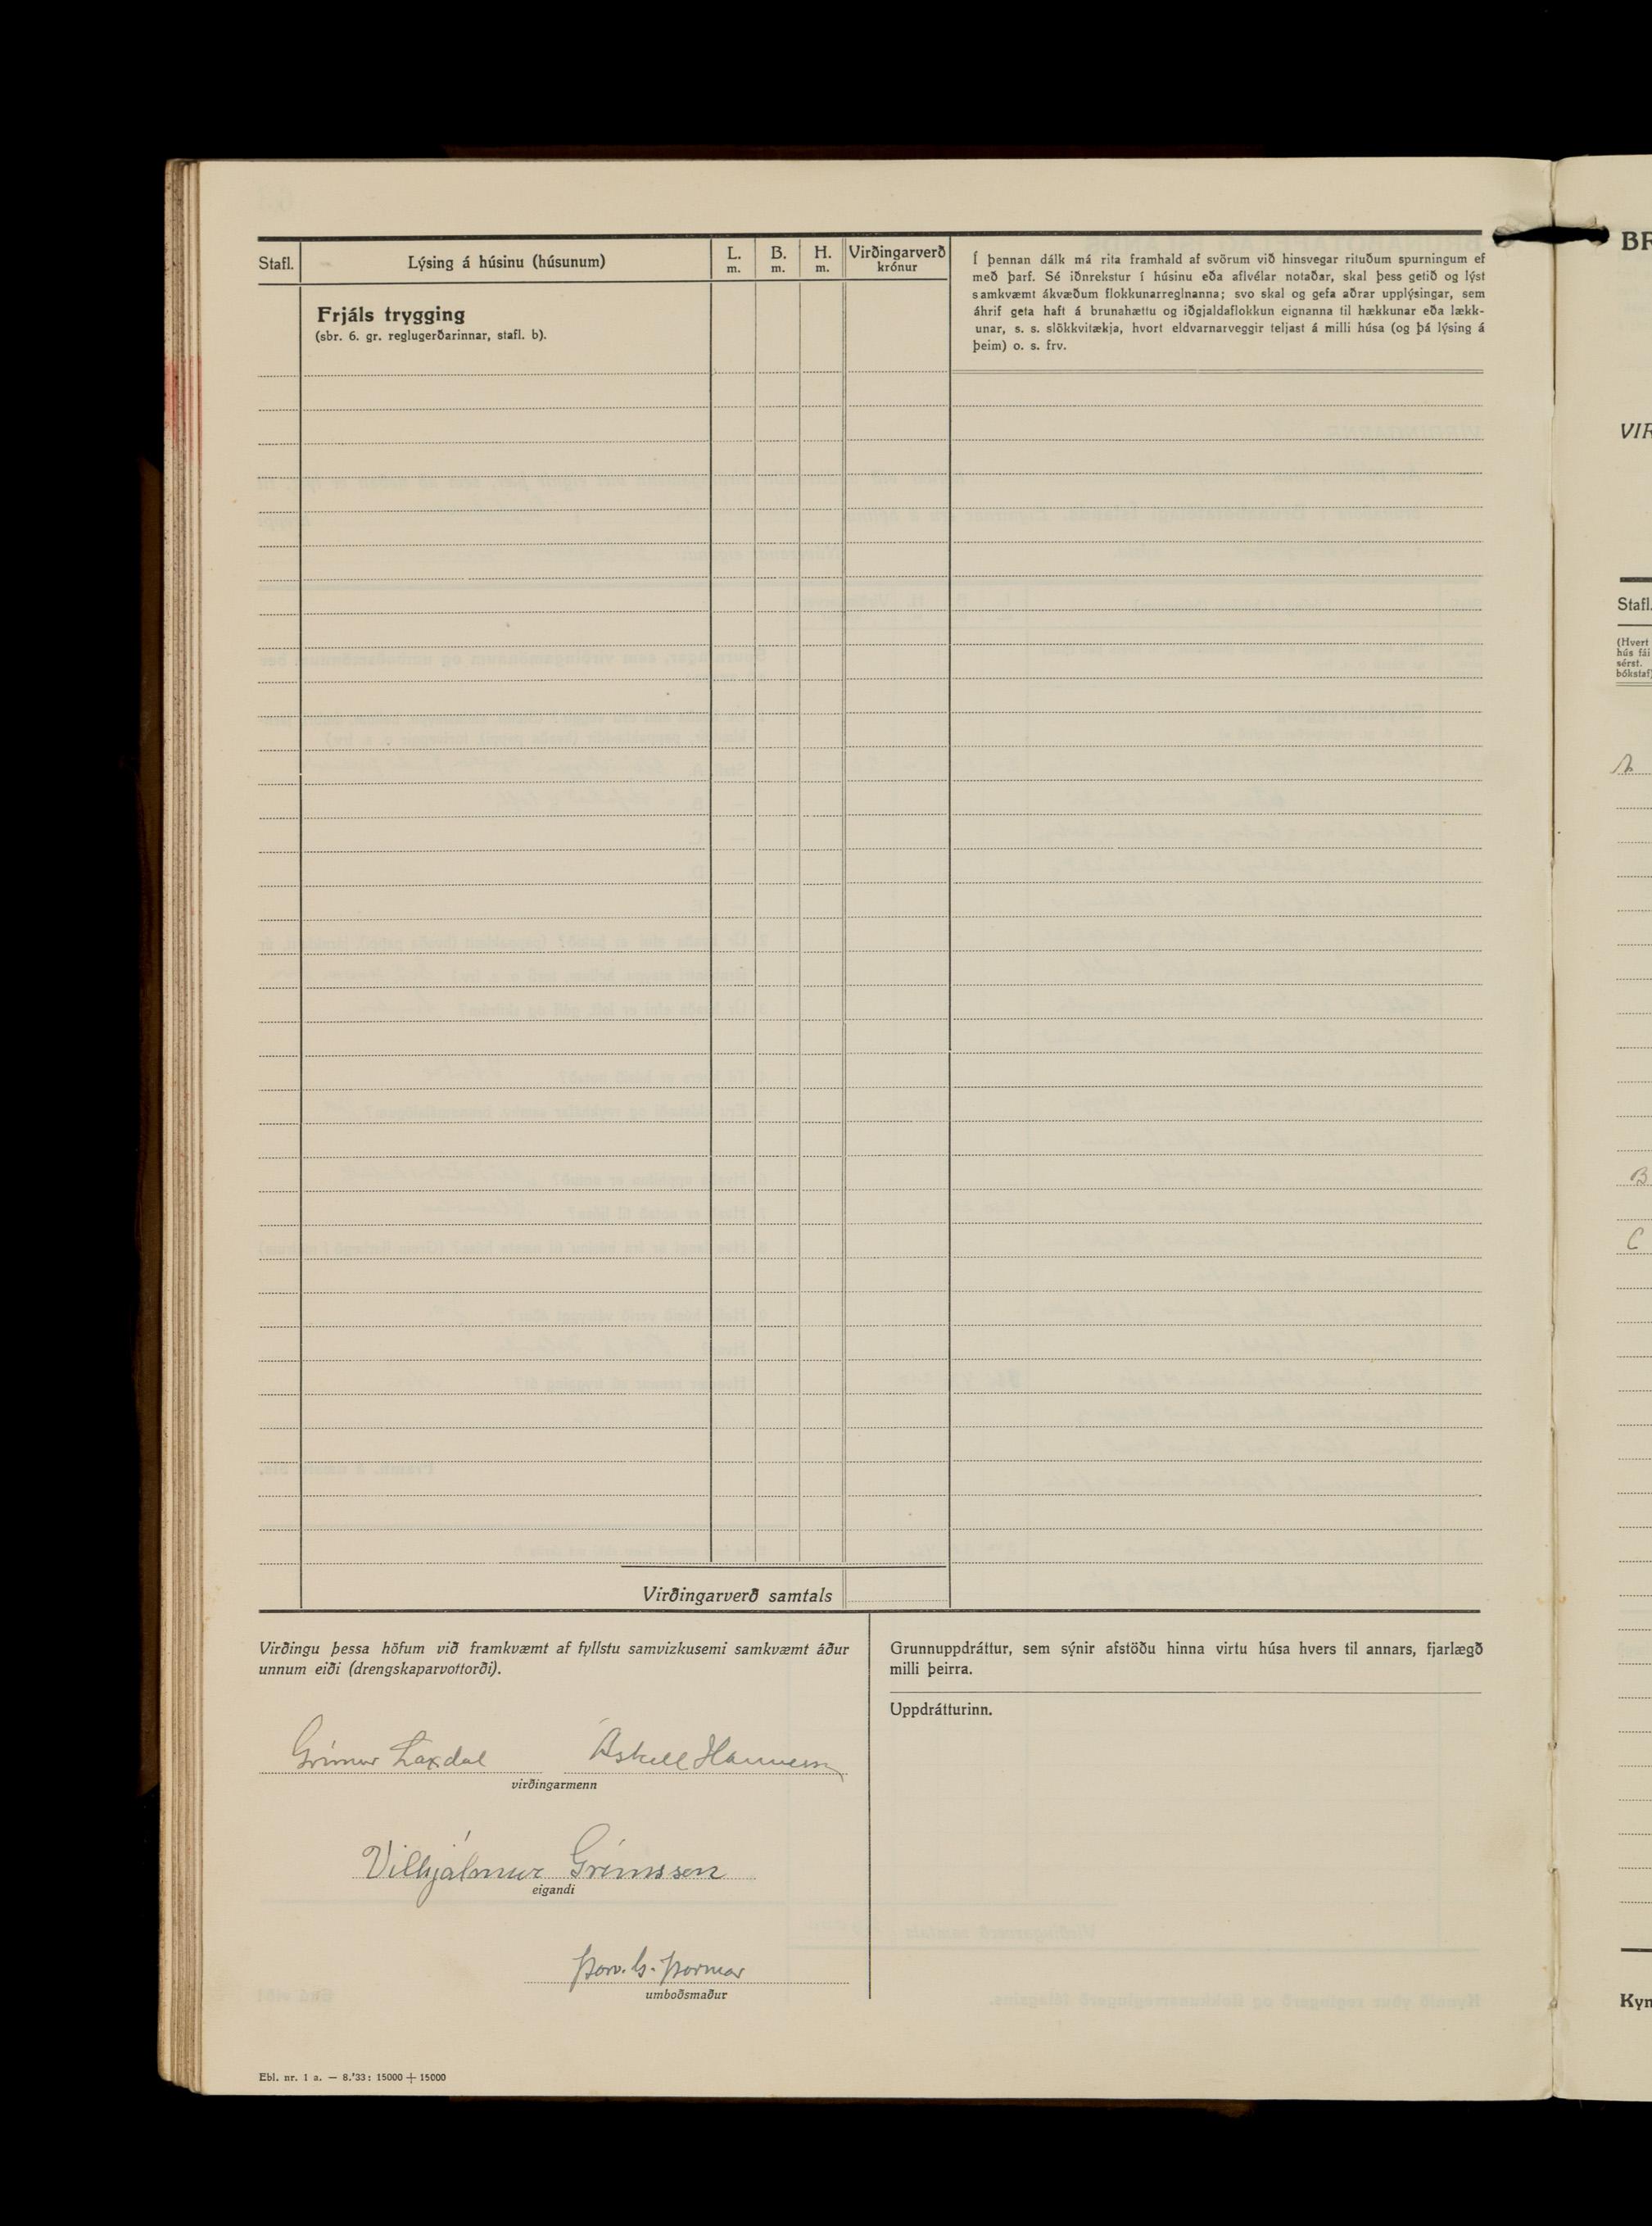 Stafl.
Lýsing á húsinu (húsunum)
L.
m.
B.
m.
H.
m.
Virðingarverð
krónur
Frjáls trygging
(sbr. 6. gr. reglugerðarinnar, stafl. b).
Í þennan dálk má rita framhald af svörum við hinsvegar rituðum spurningum ef
með þarf. Sé iðnrekstur í húsinu eða aflvélar notaðar, skal þess getið og lýst
samkvæmt ákvæðum flokkunarreglnanna; svo skal og gefa aðrar upplýsingar, sem
áhrif geta haft á brunahættu og iðgjaldaflokkun eignanna til hækkunar eða lækk-
unar, s. s. slökkvitækja, hvort eldvarnarveggir teljast á milli húsa (og þá lýsing á
þeim) o. s. frv.
Virðingarverð samtals
Virðingu þessa höfum við framkvæmt af fyllstu samvizkusemi samkvæmt áður
unnum eiði (drengskaparvottorði).
Grímur Laxdal Áskell Hannesson
virðingarmenn
Vilhjálmur Grímsson
eigandi
Þorv. G. Þormar
umboðsmaður
Grunnuppdráttur, sem sýnir afstöðu hinna virtu húsa hvers til annars, fjarlægð
milli þeirra.
Uppdrátturinn.
Ebl. nr. 1 a. — 8.'33: 15000 + 15000
BR
VIR
Stafl.
(Hvert
hús fái
sérst.
bókstaf)
B
C
Kyn